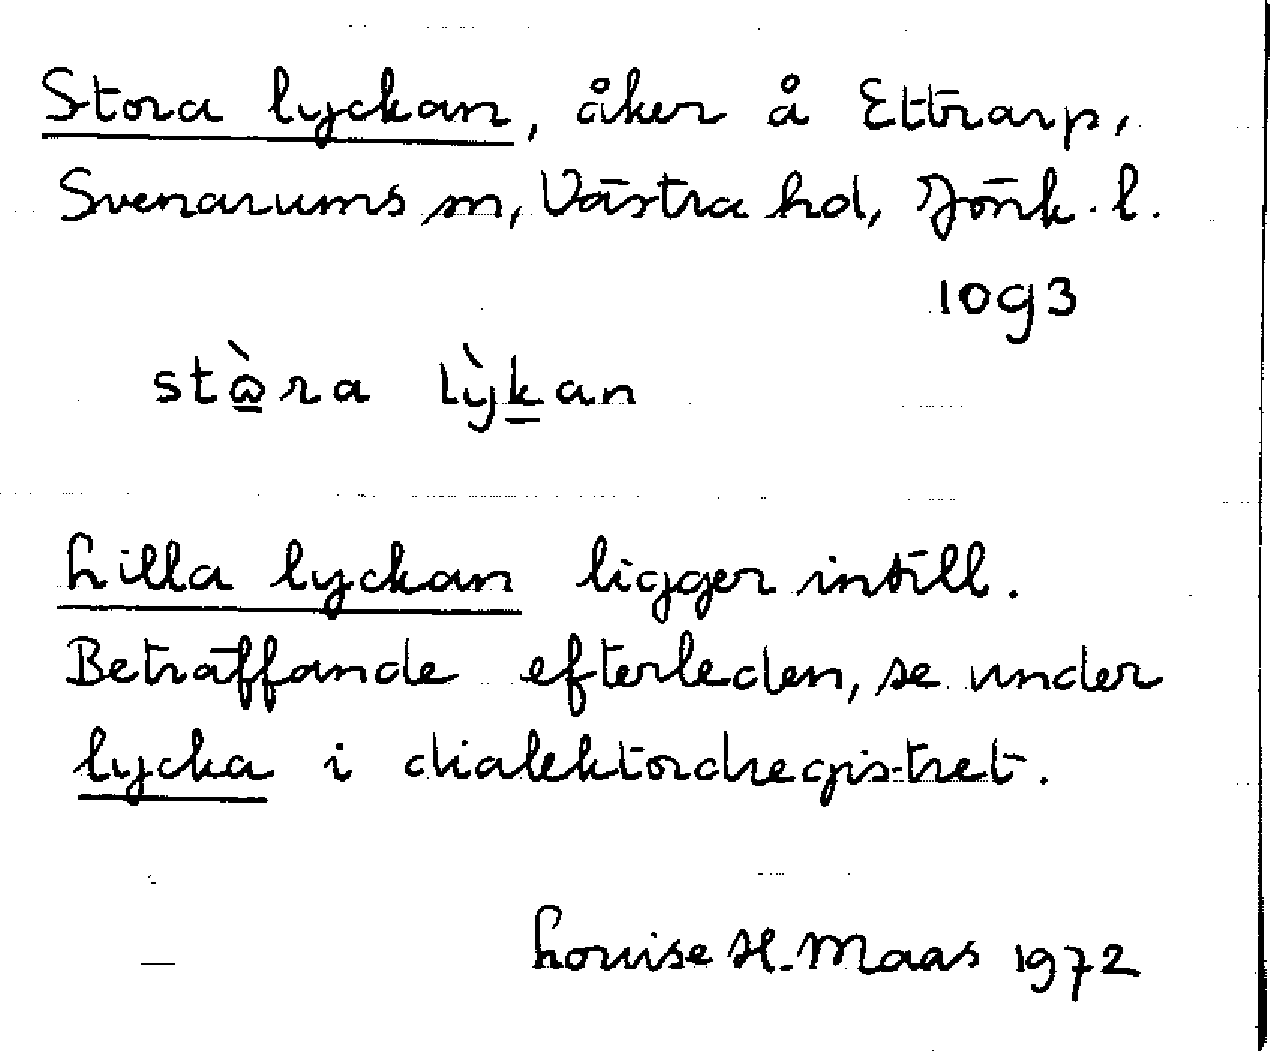 Stora lyckan, åker å Ettrarp,
Svenarums sn, Västra hd, Jönk. l.
10g3
stɷ̀ra lỳkan
Lilla lyckan ligger intill.
Beträffande efterleden, se under
lycka i dialektordregistret.
Louise H. Maas 1972